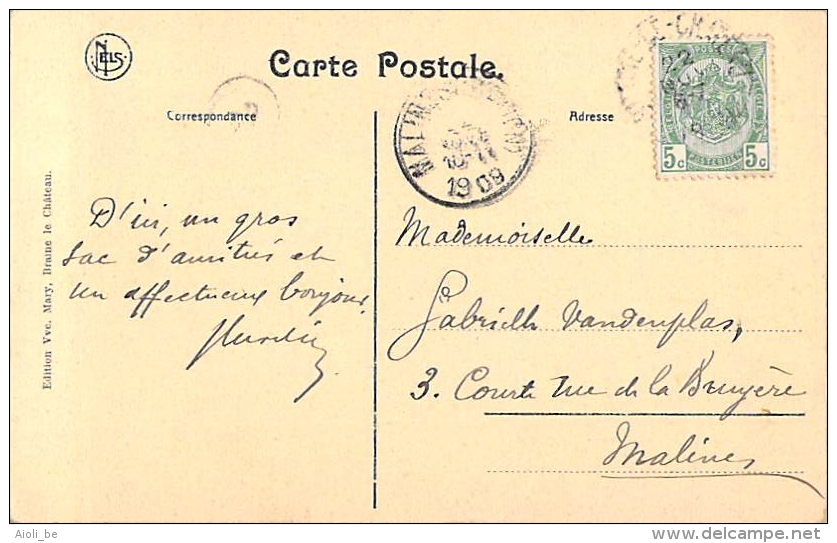 NELS
Carte Postale.
Correspondance
Adresse
POSTES
5c 5c
POSTERIJEN
10-11
1909
22
D'ici, un gros
sac d'amitiés et
un affectueux bonjour.
Mademoiselle
Gabrielle Vandenplas,
3. Courte rue de la Bruyère
Malines
Edition Vve. Mary, Braine le Château.
Aioli_be
www.delcampe.net